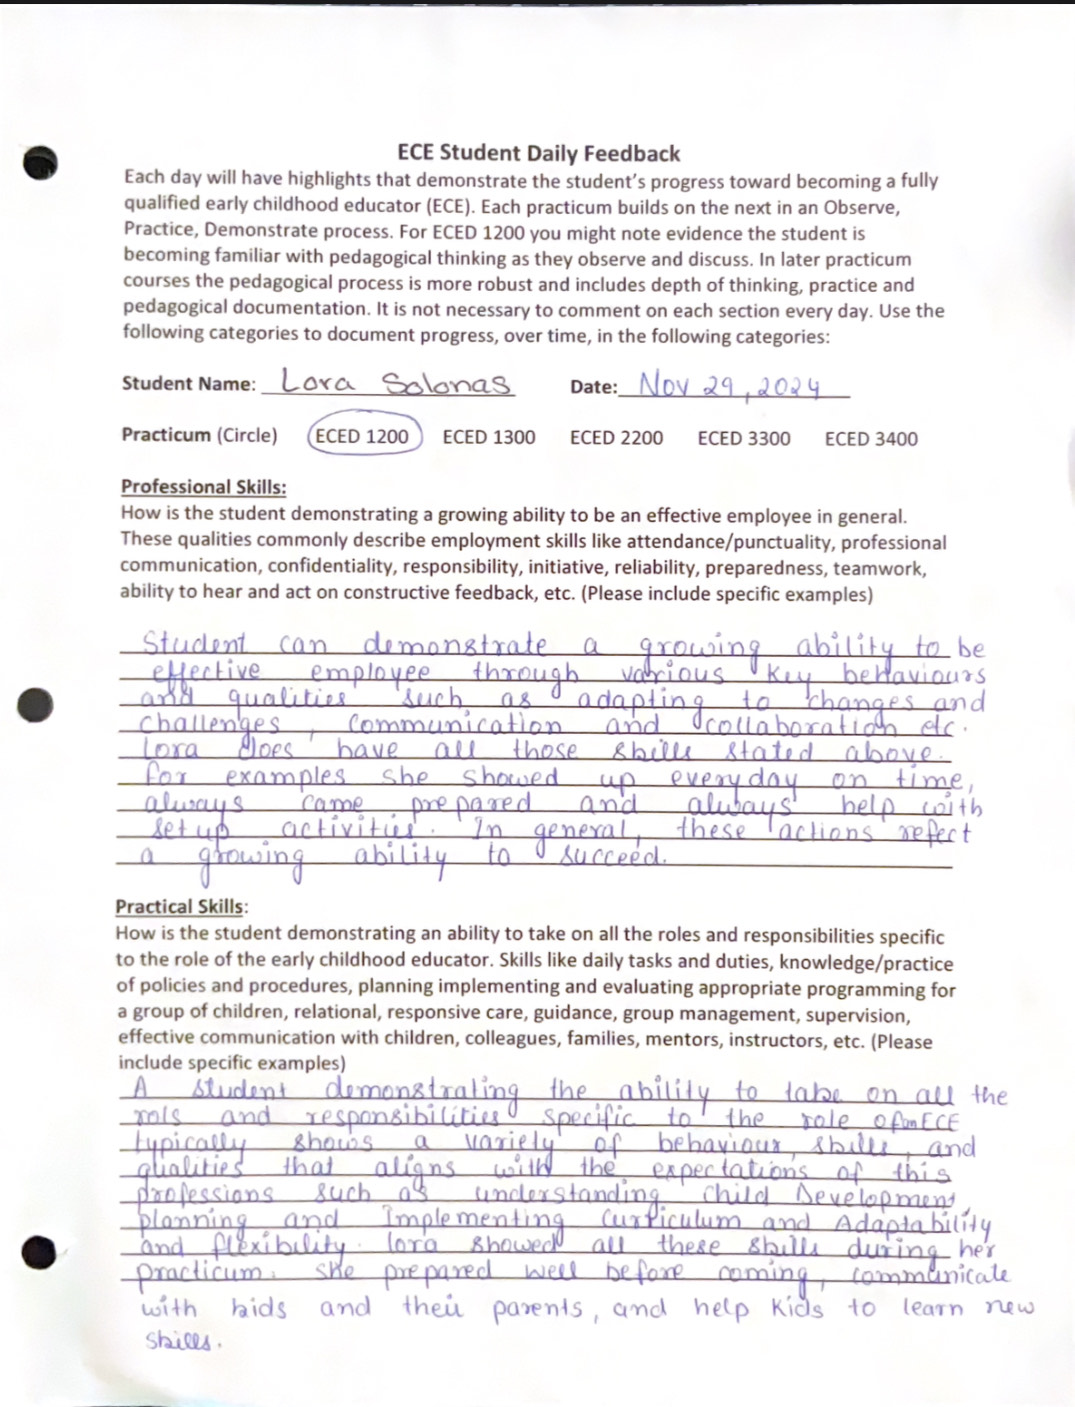 ECE Student Daily Feedback
Each day will have highlights that demonstrate the student's progress toward becoming a fully
qualified early childhood educator (ECE). Each practicum builds on the next in an Observe,
Practice, Demonstrate process. For ECED 1200 you might note evidence the student is
becoming familiar with pedagogical thinking as they observe and discuss. In later practicum
courses the pedagogical process is more robust and includes depth of thinking, practice and
pedagogical documentation. It is not necessary to comment on each section every day. Use the
following categories to document progress, over time, in the following categories:
Student Name: Lora Solonas Date: Nov 29, 2024
Practicum (Circle) ECED 1200 ECED 1300 ECED 2200 ECED 3300 ECED 3400
Professional Skills:
How is the student demonstrating a growing ability to be an effective employee in general.
These qualities commonly describe employment skills like attendance/punctuality, professional
communication, confidentiality, responsibility, initiative, reliability, preparedness, teamwork,
ability to hear and act on constructive feedback, etc. (Please include specific examples)
Student can demonstrate a growing ability to be
effective employee through various key behaviours
and qualities such as adapting to changes and
challenges, communication and collaboration etc.
Lora does have all those skills stated above.
For examples she showed up everyday on time,
always came prepared and always help with
set up activities. In general, these actions refect
a growing ability to succeed.
Practical Skills:
How is the student demonstrating an ability to take on all the roles and responsibilities specific
to the role of the early childhood educator. Skills like daily tasks and duties, knowledge/practice
of policies and procedures, planning implementing and evaluating appropriate programming for
a group of children, relational, responsive care, guidance, group management, supervision,
effective communication with children, colleagues, families, mentors, instructors, etc. (Please
include specific examples)
A student demonstrating the ability to take on all the
rols and responsibilities specific to the role of an ECE
typically shows a variety of behaviour, skills, and
qualities that aligns with the expectations of this
professions such as understanding child Development,
planning and Implementing Curriculum and Adaptability
and flexibility. Lora showed all these skills during her
practicum. She prepared well before coming, communicate
with kids and their parents, and help kids to learn new
skills.